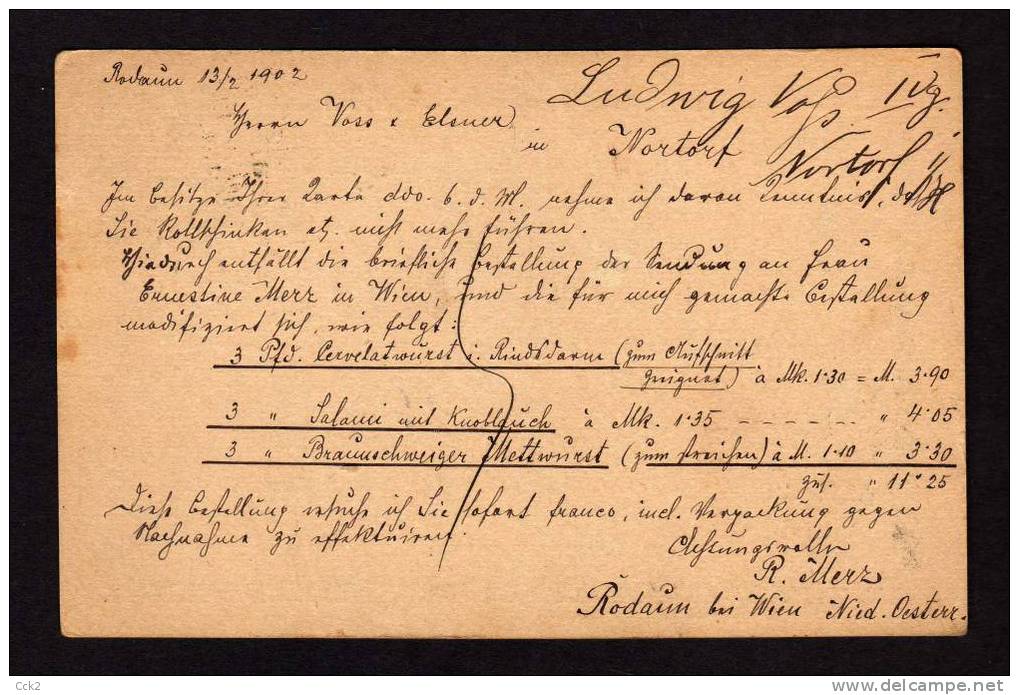 Rodaun 13/2 1902
Ludwig Voss
Herrn Voss & Elsner
in Nortorf
Nortorf
Im Besitze Ihrer Karte ddo. 6. d. M. nehme ich davon Kenntnis, daß
Sie Rollschinken etc. nicht mehr führen.
Hiedurch entfällt die briefliche Bestellung der Sendung an Frau
Ernestine Merz in Wien, und die für mich gemachte Bestellung
modifiziert sich, wie folgt:
3 Pfd. Cervelatwurst i. Rindsdarm (zum Aufschnitt
geeignet) à Mk. 1·30 = M. 3·90
3 " Salami mit Knoblauch à Mk. 1·35 - - - - - - " 4·05
3 " Braunschweiger Mettwurst (zum streichen) à M. 1·10 " 3·30
zus. " 11·25
Diese Bestellung ersuche ich Sie sofort franco, incl. Verpackung gegen
Nachnahme zu effektuieren.
Achtungsvoll
R. Merz
Rodaun bei Wien Nied. Oesterr.
Cck2
delcampe.net